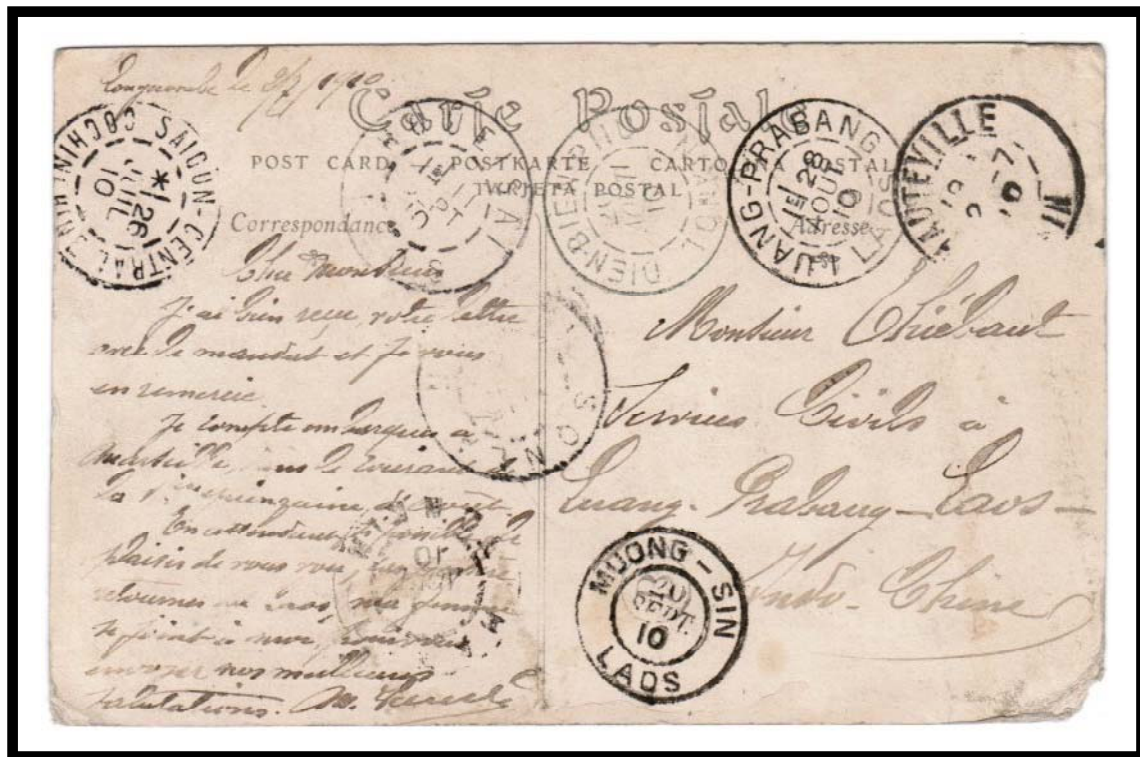 le 1910
Carte Postale
POST CARD POSTKARTE CARTOLINA POSTALE
TARJETA POSTAL
Correspondance
Adresse
SAIGON-CENTRAL COCHINCHINE
26
JUIL
10
DIEN-BIEN-PHU
10
LUANG-PRABANG
28
AOUT
10
LAOS
HAUTEVILLE
Cher Monsieur
J'ai bien reçu votre lettre
avec le mandat et je vous
en remercie
Je compte embarquer a
Marseille, dans le courant
la quinzaine d'
En attendant le
plaisir de vous voir,
retourner au Laos, ma femme
se joint à moi, pour vous
envoyer nos meilleures
salutations.
Monsieur Thiébaut
Services Civils à
Luang-Prabang-Laos-
Indo-Chine
SON
10
MUONG-SIN
20
SEPT.
10
LAOS